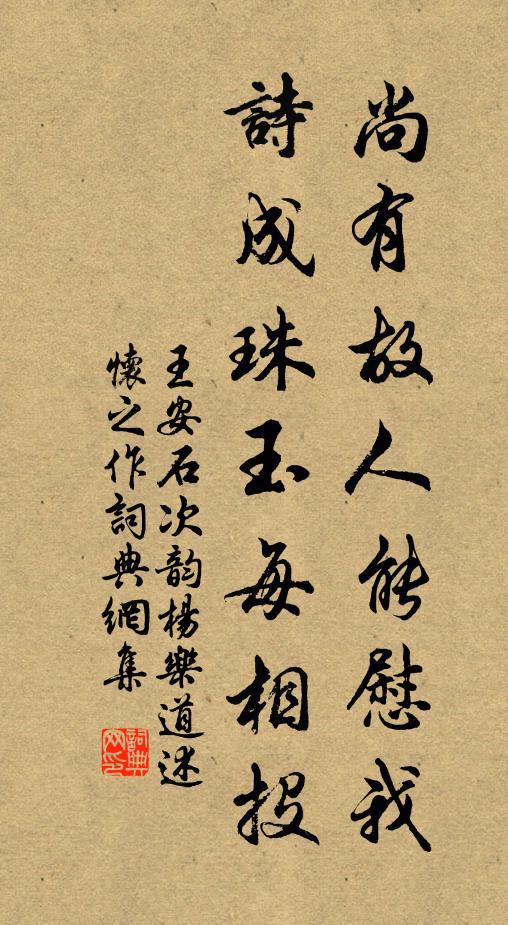 尚有故人能慰我
詩成珠玉每相投
王安石次韵楊樂道述
懷之作詞典網集
詞典
网印